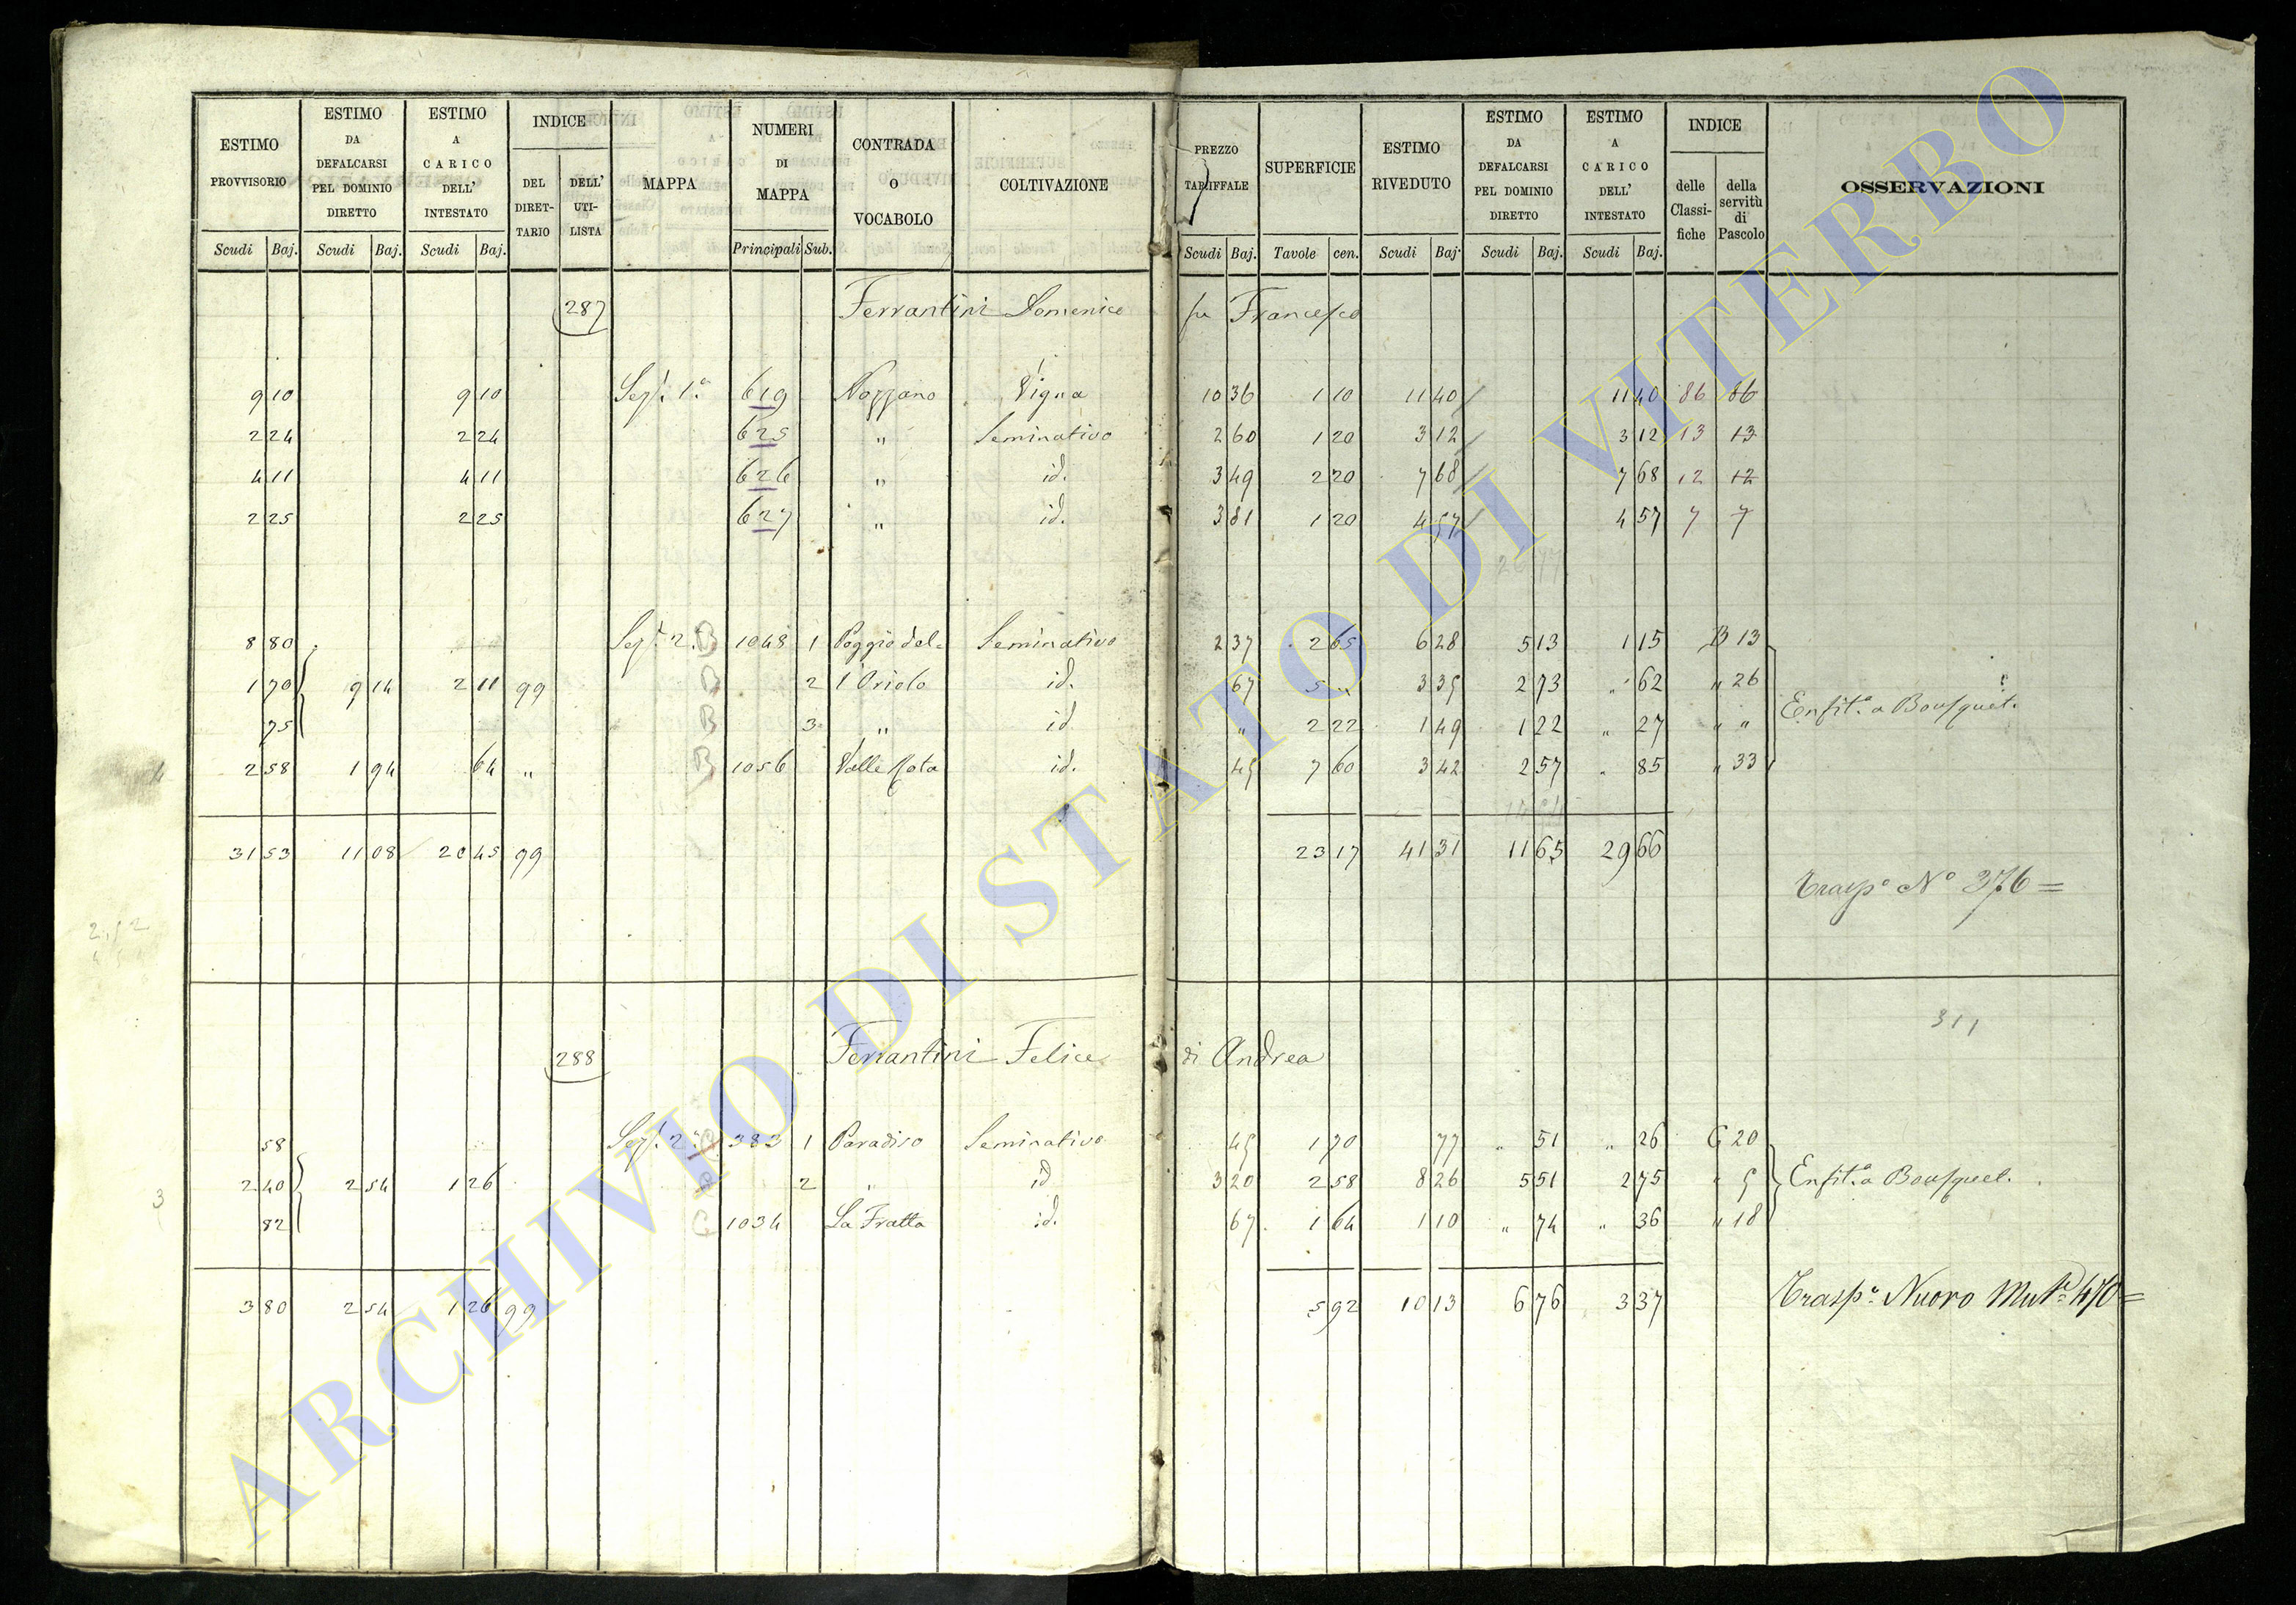 ESTIMO PROVVISORIO | ESTIMO DA DEFALCARSI PEL DOMINIO DIRETTO | ESTIMO A CARICO DELL' INTESTATO | INDICE | MAPPA | NUMERI DI MAPPA | CONTRADA O VOCABOLO | COLTIVAZIONE | PREZZO TARIFFALE | SUPERFICIE | ESTIMO RIVEDUTO | ESTIMO DA DEFALCARSI PEL DOMINIO DIRETTO | ESTIMO A CARICO DELL' INTESTATO | INDICE | OSSERVAZIONI
DEL DIRET-TARIO | DELL' UTI-LISTA | delle Classi-fiche | della servitù di Pascolo
Scudi | Baj. | Scudi | Baj. | Scudi | Baj. | Principali | Sub. | Scudi | Baj. | Tavole | cen. | Scudi | Baj. | Scudi | Baj. | Scudi | Baj.
287 Ferrantini Domenico fu Francesco
9 10 | 9 10 | Sez.e 1.a | 619 | Nozzano | Vigna | 10 36 | 1 10 | 11 40 | 11 40 | 86 | 86
2 24 | 2 24 | 625 | " | Seminativo | 2 60 | 1 20 | 3 12 | 3 12 | 13 | 13
4 11 | 4 11 | 626 | " | id. | 3 49 | 2 20 | 7 68 | 7 68 | 12 | 12
2 25 | 2 25 | 627 | " | id. | 3 81 | 1 20 | 4 57 | 4 57 | 7 | 7
26 77
8 80 | Sez.e 2.a B | 1048 | 1 | Poggio del= | Seminativo | 2 37 | 2 65 | 6 28 | 5 13 | 1 15 | B 13
1 70 | 9 14 | 2 11 | 99 | B | 2 | l'Oriolo | id. | 67 | 5 " | 3 35 | 2 73 | " 62 | " 26
75 | B | 3 | " | id. | " | 2 22 | 1 49 | 1 22 | " 27 | " "
Enfit.a a Bousquet.
2 58 | 1 94 | 64 | " | B | 1056 | Valle Rota | id. | 45 | 7 60 | 3 42 | 2 57 | " 85 | " 33
31 53 | 11 08 | 20 45 | 99 | 23 17 | 41 31 | 11 65 | 29 66
Trasp.o N.o 376 =
311
288 Ferrantini Felice di Andrea
58 | Sez.e 2.a | 383 | 1 | Paradiso | Seminativo | 45 | 1 70 | 77 | " 51 | " 26 | C 20
2 40 | 2 54 | 1 26 | 2 | " | id | 3 20 | 2 58 | 8 26 | 5 51 | 2 75 | " 5 | Enfit.a a Bousquet.
3
82 | C | 1034 | La Fratta | id. | 67 | 1 64 | 1 10 | " 74 | " 36 | " 18
3 80 | 2 54 | 1 26 | 99 | 5 92 | 10 13 | 6 76 | 3 37 | Trasp.o Nuovo Mut.e 470 =
ARCHIVIO DI STATO DI VITERBO